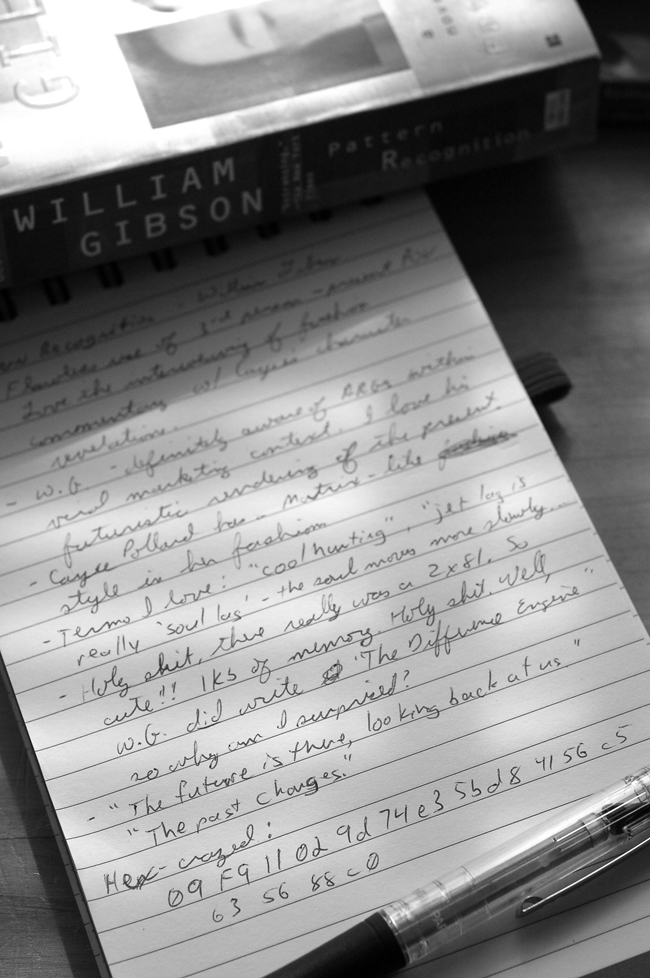 WILLIAM
GIBSON
Pattern
Recognition
Recognition - William Gibson
Flawless use of 3rd person - present POV
Love the interweaving of fashion
commentary w/ Cayce's character
revelation.
- W.G. - definitely aware of ARGs within
viral marketing context. I love his
futuristic rendering of the present.
- Cayce Pollard has - Matrix-like
style in her fashion
- Terms I love: "cool hunting", "jet lag is
really 'soul lag' - the soul moves more slowly...
- Holy shit, there really was a Zx81. So
cute!! 1KB of memory. Holy shit. Well,
W.G. did write "The Difference Engine"
so why am I surprised?
- "The future is there, looking back at us"
"The past changes."
Hex-crazed:
09 F9 11 02 9d 74 e3 5bd8 41 56 c5
63 56 88 c0